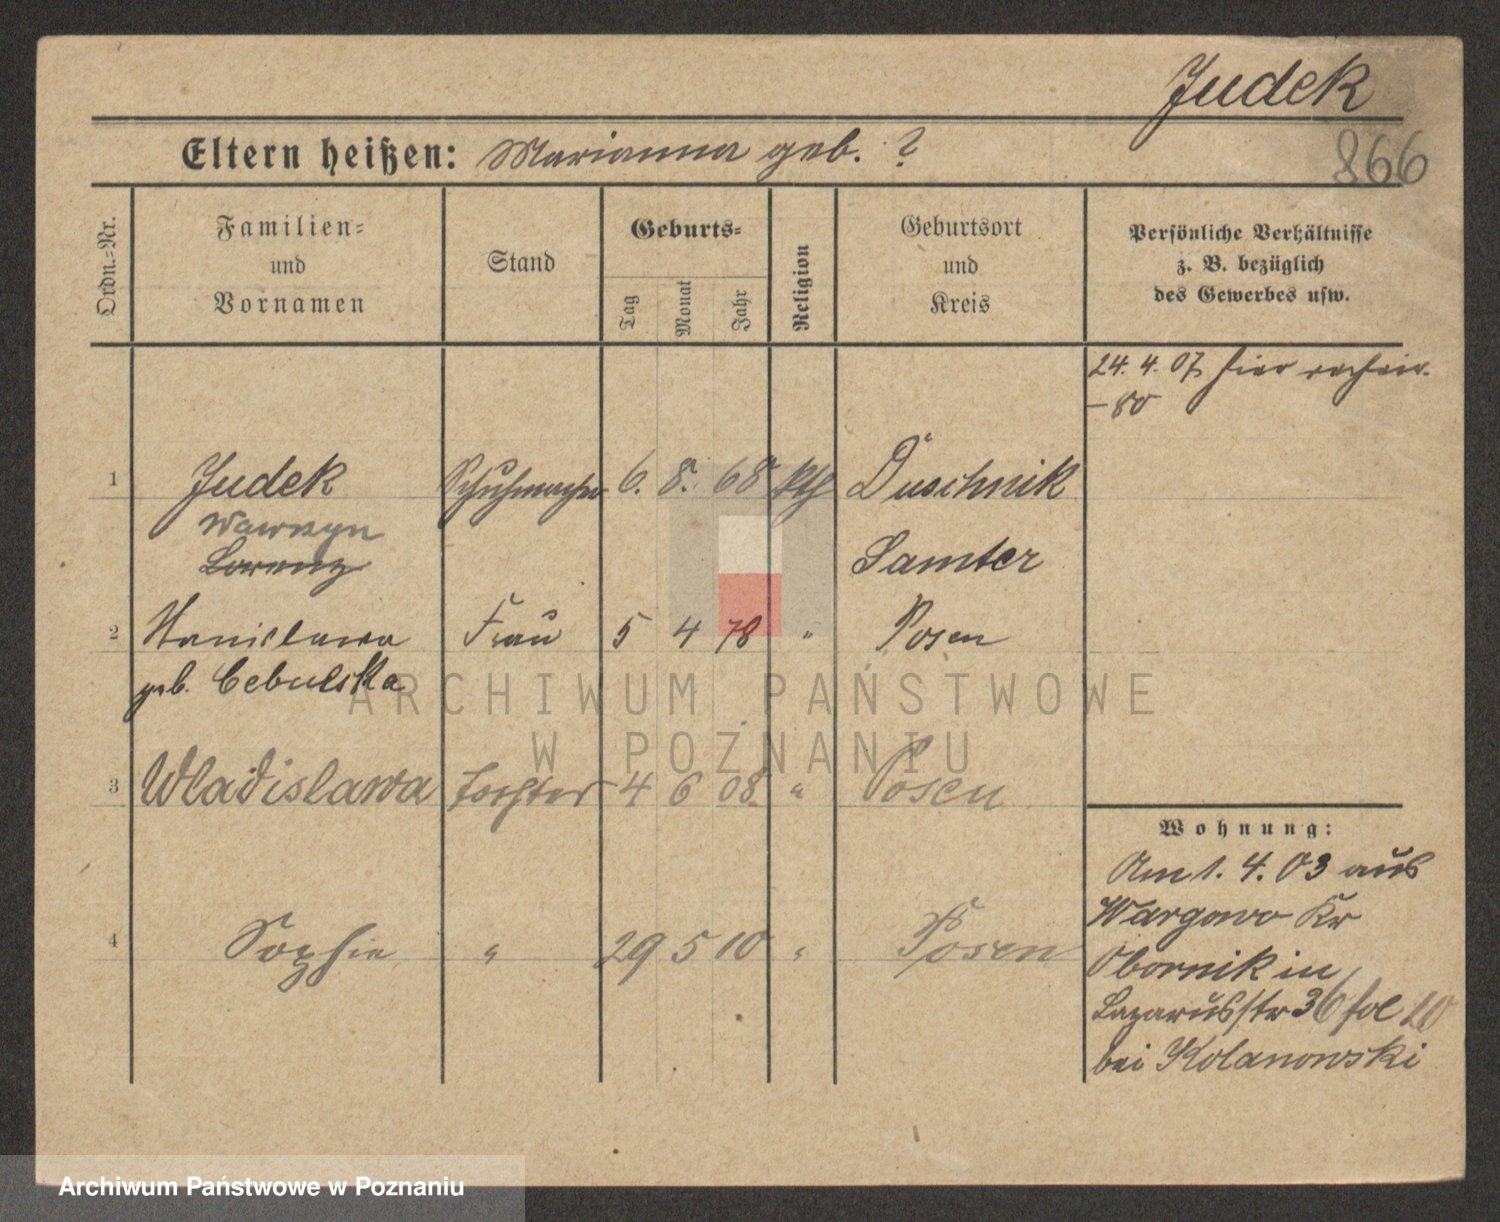 Judek
866
Eltern heißen: Marianna geb. ?
Ordn.-Nr.
Familien- und Vornamen
Stand
Geburts-
Tag
Monat
Jahr
Religion
Geburtsort und Kreis
Persönliche Verhältnisse
z. B. bezüglich
des Gewerbes usw.
24. 4. 07 hier
1 Judek Schuhmacher 6. 8. 68 kth Duschnik
Wawrzyn
Lorenz Samter
2 Stanislawa Frau 5 4 78 " Posen
geb. Cebulska
ARCHIWUM PAŃSTWOWE
W POZNANIU
3 Wladislawa Tochter 4 6 08 " Posen
4 Sophie " 29 5 10 " Posen
Wohnung:
Am 1. 4. 03 aus
Wargowo Kr
Obornik in
Lazarusstr 36 fol 10
bei Kolanowski
Archiwum Państwowe w Poznaniu